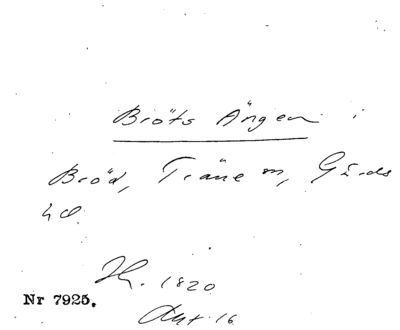 Bröts Ängen i
Bröd, Träne sn, Gärds
hd.
H. 1820
Nr 7925.
Akt 16